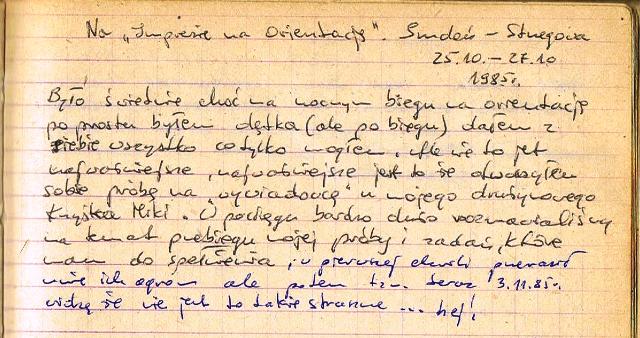 Na „Imprezie na Orientację". Smdoń – Strzegowa
25.10. – 27.10
1985r.
Było świetnie choć na nocnym biegu na orientację
po prostu byłem dętka (ale po biegu) dałem z
siebie wszystko co tylko mogłem. Ale nie to jest
najważniejsze, najważniejsze jest to że otworzyłem
sobie próbę na „wywiadowcę" u mojego drużynowego
Krzyśka Miki. W pociągu bardzo dużo rozmawialiśmy
na temat przebiegu mojej próby i zadań, które
mam do spełnienia, w pierwszej chwili przeraził
mnie ich ogrom ale potem tzn. teraz 3.11.85r.
widzę że nie jest to takie straszne ... hej!